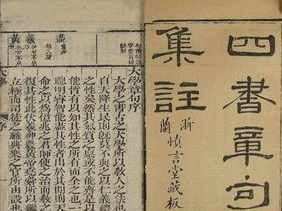 四書章句
集註
浙
蘭慎言堂藏板
大學章句序
大學之書古之大學所以教人之法
自天降生民則既莫不與之以仁義禮
之性矣然其氣質之稟或不能齊是
能皆有以知其性之所有而全之也一
聰明睿智能盡其性者出於其間則天
命之以為億兆之君師使之治而教之
復其性此伏羲神農黃帝堯舜所以
立極而司徒之職典樂之官所由設
羲
黃